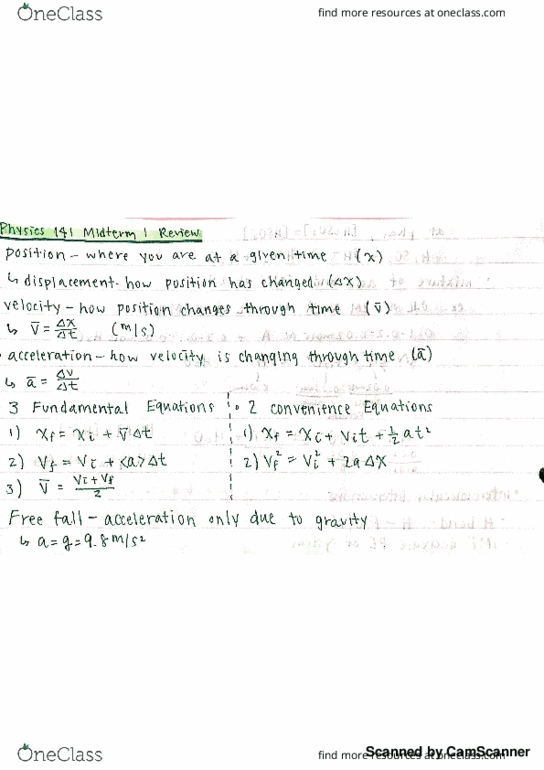 OneClass
find more resources at oneclass.com
Physics 141 Midterm 1 Review
position – where you are at a given time (x)
↳ displacement - how position has changed (Δx)
velocity – how position changes through time (v̄)
↳ v̄ = Δx/Δt (m/s)
• acceleration – how velocity is changing through time (ā)
↳ ā = Δv/Δt
3 Fundamental Equations
1) xf = xi + v̄Δt
2) Vf = Vi + <a>Δt
3) v̄ = (Vi + Vf)/2
• 2 convenience Equations
1) xf = xi + Vit + ½at²
2) Vf² = Vi² + 2aΔx
Free fall – acceleration only due to gravity
↳ a = g = 9.8 m/s²
OneClass
find more resources at oneclass.com
Scanned by CamScanner